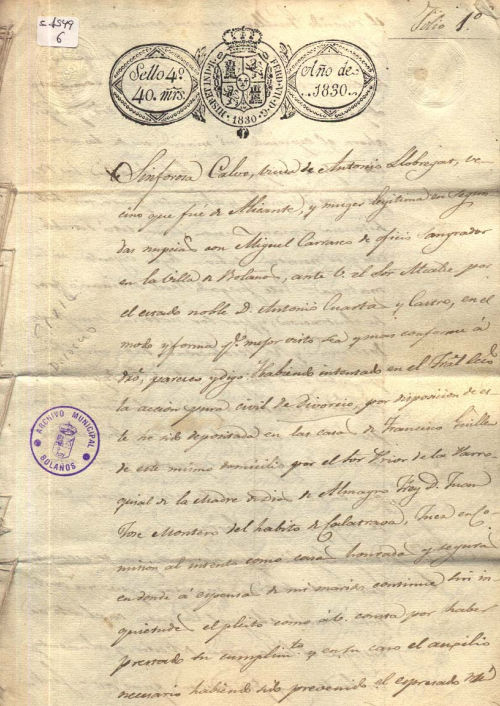 C 1549
6
Folio 1º
Sello 4º
40. mrs.
HISP. ET IND. REX
FERD. VII. D. G.
1830
Año de
1830
Sinforosa Calvo, viuda de Antonio Llobregat, ve
cino que fué de Alicante, y muger legitima en segun
das nupcias con Miguel Carrasco de oficio sangrador
en la Villa de Bolaños, ante V. el Sor Alcalde por
el estado noble D. Antonio Cuarta y Castro, en el
modo y forma qe mejor visto sea y mas conforme á
dro, parezco y digo: Habiendo intentado en el Tral Ecco
la accion pura civil de Divorcio, por disposicion de es
te he sido depositada en las casa de Francisco Guillen
de este mismo domicilio por el Sor Prior de la Parro
quial de la Madre de Dios de Almagro Frey D. Juan
Jose Montero del habito de Calatrava, Juez en Co
mision al intento como casa honrada y segura
en donde á espensas de mi marido continue sin in
quietud el pleito como á V. consta por haber
prestado su cumplimto y en su caso el ausilio
necesario habiendo sido prevenido el espresado mi
Civil
Divorcio
ARCHIVO MUNICIPAL
BOLAÑOS